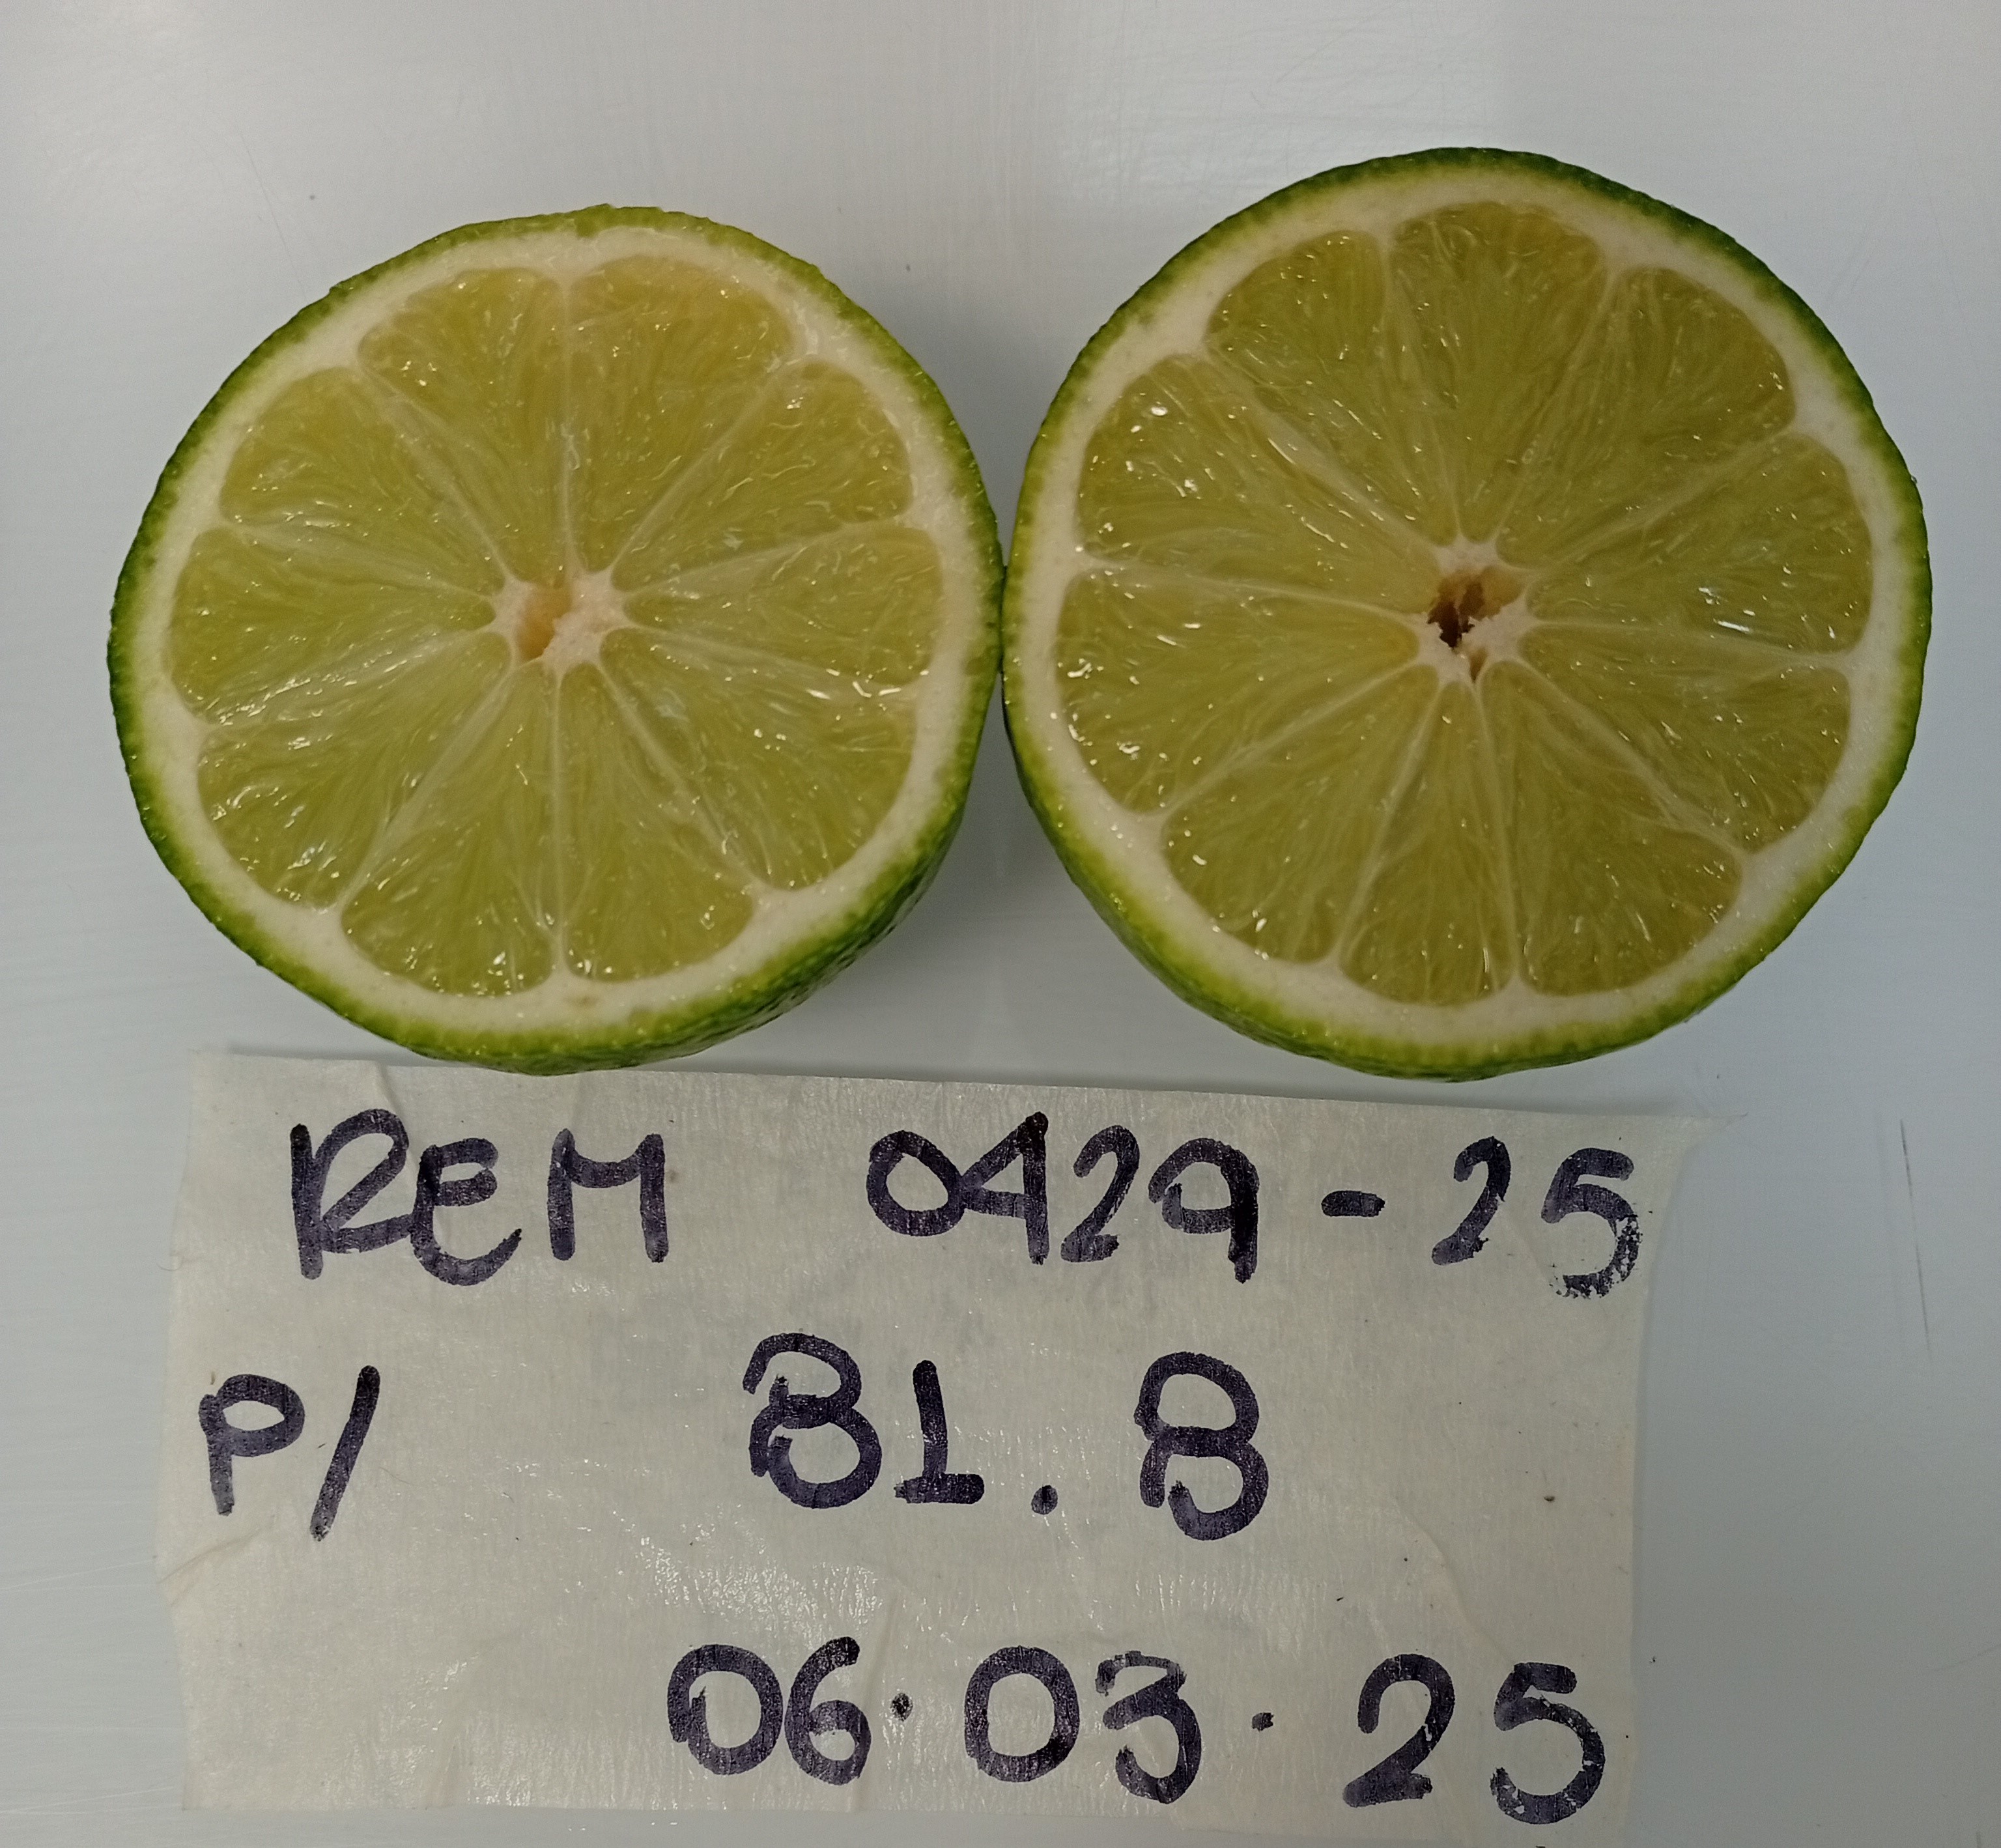 REM 0429-25
P/ 81.8
06.03.25